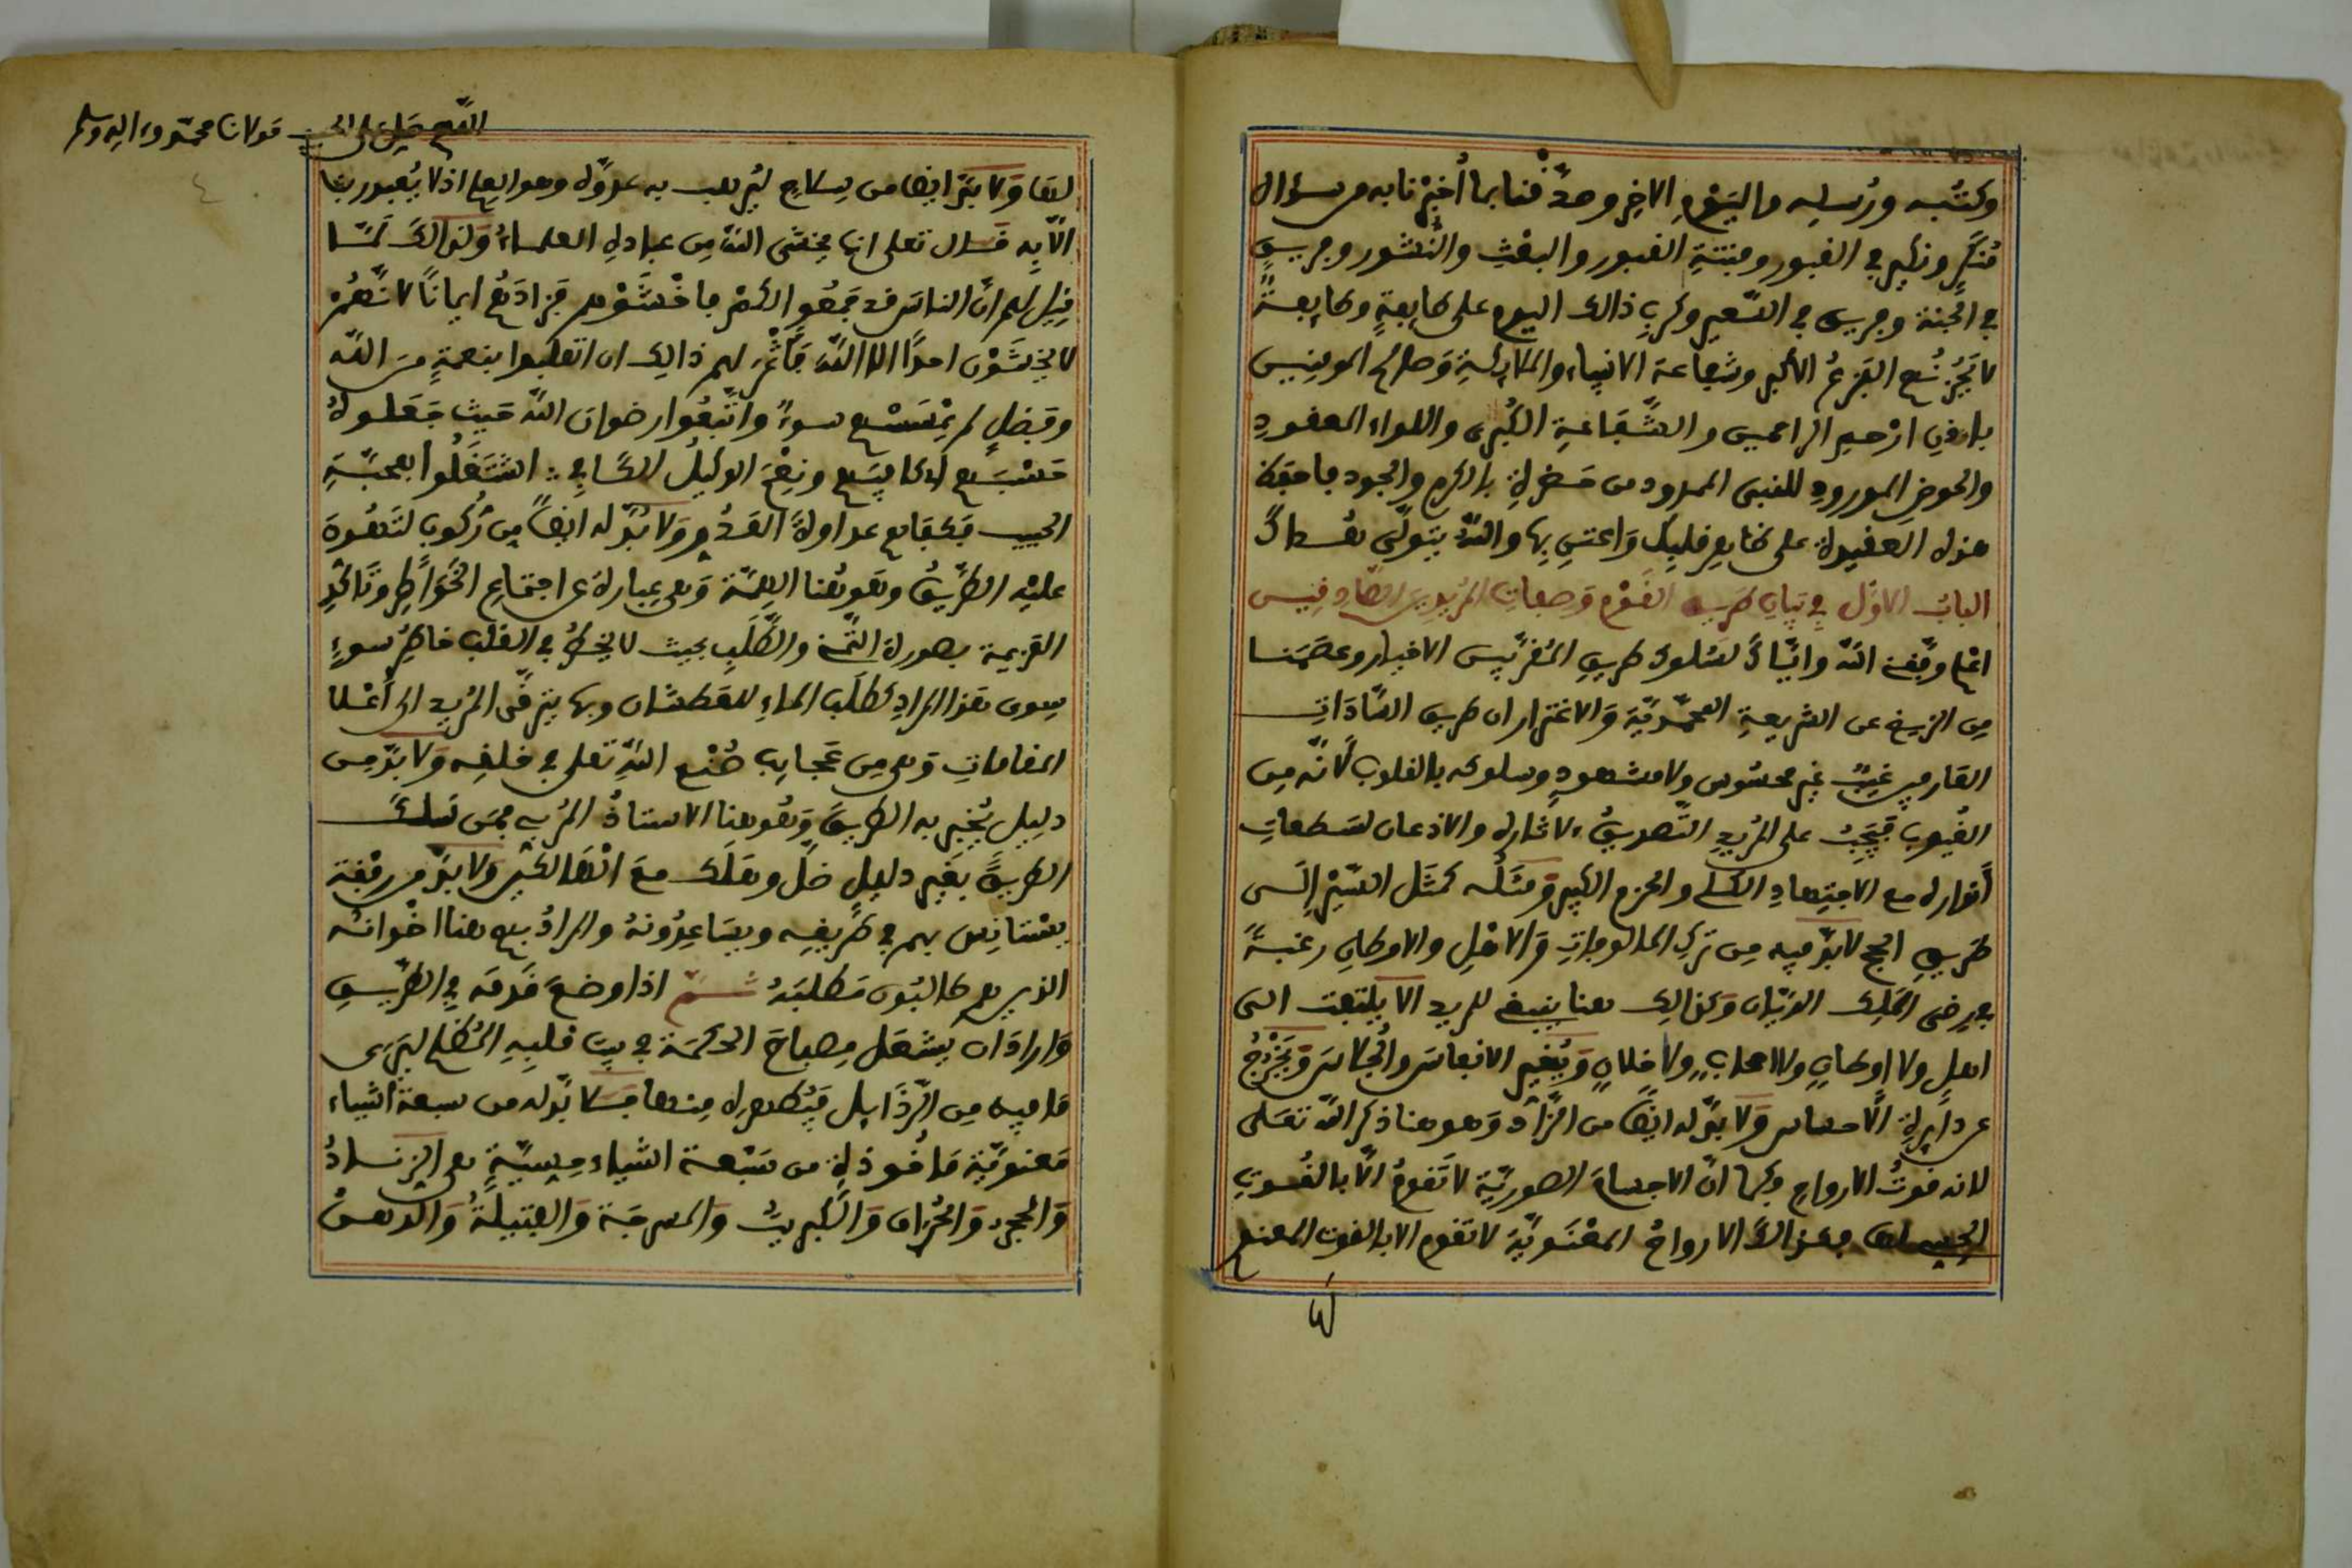 وكتبه ورسله واليوم الاخر وصدّقنا بما أخبرنا به من سؤال
منكر ونكير في القبور وفتنة القبور والبعث والنشور وفريق
في الجنة وفريق في السعير وكرب ذالك اليوم على طايعة وطايعة
لا يحزنهم الفزع الاكبر وشفاعة الانبياء والملايكة وصالح المومنين
باذن ارحم الراحمين والشفاعة الكبرى واللواء المعقود
والحوض المورود للنبي الممدود من حضرة بالكرم والجود فاحفظ
هذه العقيدة على ظاهر قلبك واعتن بها والله يتولّى هداك
الباب الاوّل في بيان طريق القوم وصفات المريدين الصادقين
اعلم وفّقنا الله وايّاك لسلوك طريق المقرّبين الاخيار وعصمنا
من الزيغ عن الشريعة المحمّديّة والاغترار ان طريق السّادات
العارفين غيب غير محسوس ولا مشهود وسلوكه بالقلوب لانّه من
الغيوب فيجب على المريد التّصديق لاثاره والاذعان لسطعات
أنواره مع الاجتهاد الكلي والحزم الكبير ومثله كمثل السير الى
طريق الحج لابدّ فيه من ترك المالوفات والاهل والاوطان رغبة
في رضى الملك الديّان وكذالك هنا ينبغي للمريد الا يلتفت الى
اهل ولا اوطان ولا اصحاب ولا خلان ويغير الانفاس والجلاس ويخرج
عن دايرة الاحساس ولا بدّ له ايضا من الزّاد وهو هنا ذكر الله تعلى
لانه قوت الارواح وكما انّ الاجسام الصوريّة لا تقوم الّا بالقوت
الجسماني فكذالك الارواح المعنويّة لا تقوم الا بالقوت المعنوي
اللهم صل على الحبيب مولانا محمّد وءاله وسلم
ولا بدّ ايضا من سلاح ليرهب به عدوّه وهو العلم اذ لا يعبد ربنا
الّا به قال تعلى انما يخشى الله من عباده العلماء ولذالك لمّا
قيل لهم انّ الناس قد جمعوا لكم فاخشوهم فزادهم ايمانا لانّهم
لا يخشون احدا الا الله فأثمر لهم ذالك ان انقلبوا بنعمة من الله
وفضل لم يمسسهم سوء واتّبعوا رضوان الله حيث جعلوه
حسبهم كافيهم ونعم الوكيل الكافي اشتغلوا بمحبّة
الحبيب فكفاهم عداوة العدو ولا بدّ له ايضا من ركوب لتهون
عليه الطريق وهو هنا الهمّة وهي عبارة عن اجتماع الخواطر وتاكّد
العزيمة بصورة التّمنّي والطّلب بحيث لا يخطر في القلب خاطر سوء
سوى هذا المراد كطلب الماء للعطشان وبها يترقّى المريد الى أعلا
المقامات وهي من عجايب صنع الله تعلى في خلقه ولا بدّ من
دليل يخبر به الطريق وهو هنا الاستاذ المربي فمن سلك
الطريق بغير دليل ضلّ وهلك مع الهالكين ولا بدّ من رفقة
يستانس بهم في طريقه ويساعدونه والمراد بهم هنا اخوانه
الذين هم طالبون مطلبه ثمّ اذا وضع قدمه في الطّريق
وارادان يشعل مصباح الحكمة في بيت قلبه المظلم ليرى
ما فيه من الرّذايل فيطهره منها فلا بدّ له من سبعة أشياء
معنويّة ماخوذة من سبعة أشياء حسيّة هي الزناد
والحجر والحراق والكبريت والمسرجة والفتيلة والدهن